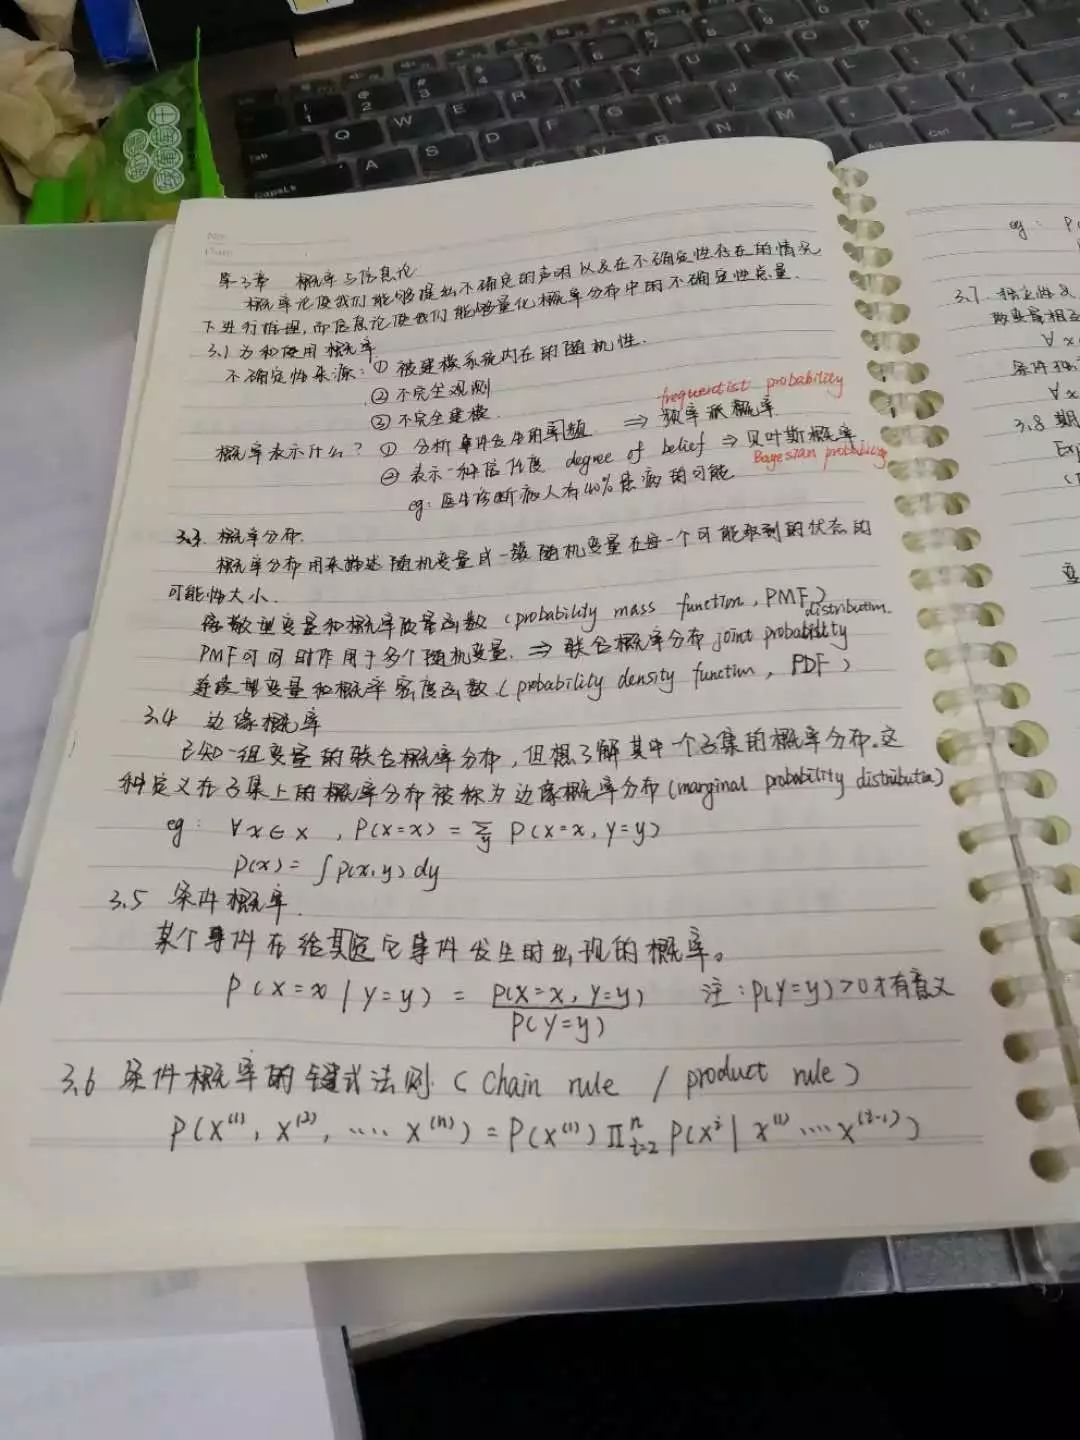 第3章 概率与信息论
概率论使我们能够提出不确定的声明以及在不确定性存在的情况
下进行推理,而信息论使我们能够量化概率分布中的不确定性总量.
3.1 为和使用概率
不确定性来源: ① 被建模系统内在的随机性.
② 不完全观测
③ 不完全建模.
frequentist probability
概率表示什么? ① 分析事件发生的频率 ⇒ 频率派概率
② 表示一种信任度 degree of belief ⇒ 贝叶斯概率
Bayesian probability
eg: 医生诊断病人有40%患病的可能
3.3. 概率分布.
概率分布用来描述随机变量或一簇随机变量在每一个可能取到的状态的
可能性大小.
离散型变量和概率质量函数 (probability mass function, PMF)
distribution.
PMF可同时作用于多个随机变量. ⇒ 联合概率分布 joint probability
连续型变量和概率密度函数 (probability density function, PDF)
3.4 边缘概率
已知一组变量的联合概率分布,但想了解其中一个子集的概率分布.这
种定义在子集上的概率分布被称为边缘概率分布(marginal probability distribution)
eg: ∀x∈x, P(x=x) = Σy P(x=x, y=y)
p(x) = ∫p(x,y)dy
3.5 条件概率.
某个事件在给定其它事件发生时出现的概率。
P(x=x | y=y) = P(x=x, y=y) / P(y=y) 注:p(y=y)>0才有意义
3.6 条件概率的链式法则 (Chain rule / product rule)
P(x⁽¹⁾, x⁽²⁾, .... x⁽ⁿ⁾) = P(x⁽¹⁾) Πⁿᵢ₌₂ P(xⁱ | x⁽¹⁾ .... x⁽ⁱ⁻¹⁾)
eg: P(
3.7. 独立性
∀x
条件独
∀x
3.8 期
Exp